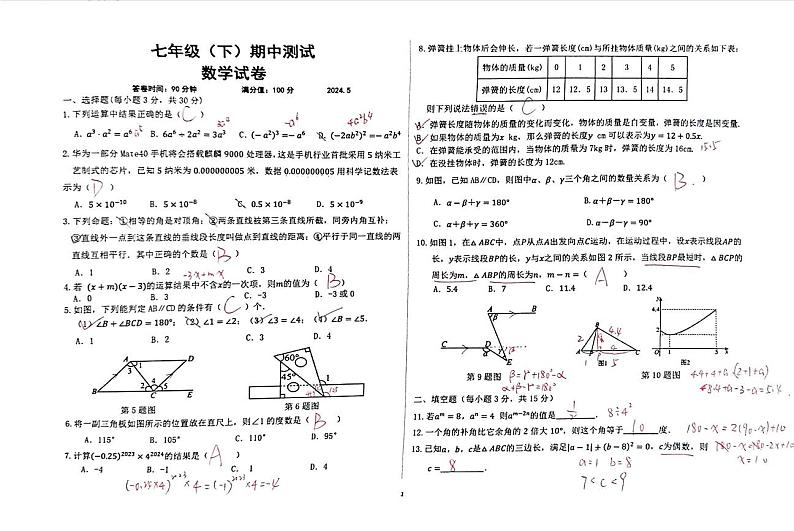 七年级（下）期中测试
数学试卷
答卷时间：90分钟 满分值：100分 2024.5
一、选择题(每小题3分，共30分)
1. 下列运算中结果正确的是( C )
A. a³·a²=a⁶ B. 6a⁶÷2a²=3a³ C. (−a²)³=−a⁶ D. (−2ab²)²=−a²b⁴
3a⁴ −a⁶ 4a²b⁴
2. 华为一部分Mate40手机将会搭载麒麟9000处理器，这是手机行业首批采用5纳米工
艺制式的芯片，已知5纳米为0.000000005米，数据0.000000005用科学记数法表
示为( D )
A. 5×10⁻¹⁰ C. 0.5×10⁻⁸ D. 5×10⁻⁹
3. 下列命题：①相等的角是对顶角；②两条直线被第三条直线所截，同旁内角互补；
③直线外一点到这条直线的垂线段长度叫做点到直线的距离；④平行于同一直线的两
直线互相平行．其中正确的个数是( B )
A. 1 B. 2 C. 3 D. 4
−3x+mx
4. 若 (x+m)(x−3)的运算结果中不含x的一次项，则m的值为( B )
A. 0 B. 3 C. −3 D. −3或0
5. 如图，下列能判定AB∥CD的条件有( C )个．
(1)∠B+∠BCD=180°； (2)∠1=∠2； (3)∠3=∠4； (4)∠B=∠5．
A. 1 B. 2 C. 3 D. 4
A D 1 3 2 4 5 B C E
60° 45° 1
第5题图 第6题图
6. 将一副三角板如图所示的位置放在直尺上，则∠1的度数是( B )
A. 115° B. 105° C. 110° D. 95°
7. 计算(−0.25)²⁰²³×4²⁰²⁴的结果是( A )
A. −4 B. −1 C. 1 D. 4
(−0.25×4)²⁰²³×4=(−1)²⁰²³×4=−4
8. 弹簧挂上物体后会伸长，若一弹簧长度(cm)与所挂物体质量(kg)之间的关系如下表：
物体的质量(kg) 0 1 2 3 4 5
弹簧的长度(cm) 12 12.5 13 13.5 14 14.5
则下列说法错误的是( C )
A. 弹簧长度随物体的质量的变化而变化，物体的质量是自变量，弹簧的长度是因变量．
B. 如果物体的质量为x kg，那么弹簧的长度y cm可以表示为y=12+0.5x．
C. 在弹簧能承受的范围内，当物体的质量为7kg时，弹簧的长度为16cm． 15.5
D. 在没挂物体时，弹簧的长度为12cm．
9. 如图，已知AB∥CD，则图中α、β、γ三个角之间的数量关系为( B )
A. α−β+γ=180° B. α+β−γ=180°
C. α+β+γ=360° D. α−β−γ=180°
10. 如图1，在△ABC中，点P从点A出发向点C运动，在运动过程中，设x表示线段AP的
长，y表示线段BP的长，y与x之间的关系如图2所示，当线段BP最短时，△BCP的
周长为m，△ABP的周长为n，m−n=( A )
A. 5.4 B. 7 C. 11.4 D. 12.4
第9题图 图1 图2 第10题图
β=γ+180°−α
α+β−γ=180°
二、填空题(每小题3分，共15分)
11. 若aᵐ=8，aⁿ=4 则aᵐ⁻²ⁿ的值是 1/2 ． 8÷4²
12. 一个角的补角比它余角的2倍大10°，则这个角等于 10 度． 180−x=2(90−x)+10
180−x=180−2x+10
x=10
13. 已知a，b，c是△ABC的三边长，满足|a−1|+(b−8)²=0，c为偶数，则
c= 8 ．
a=1 b=8
7<c<9
1